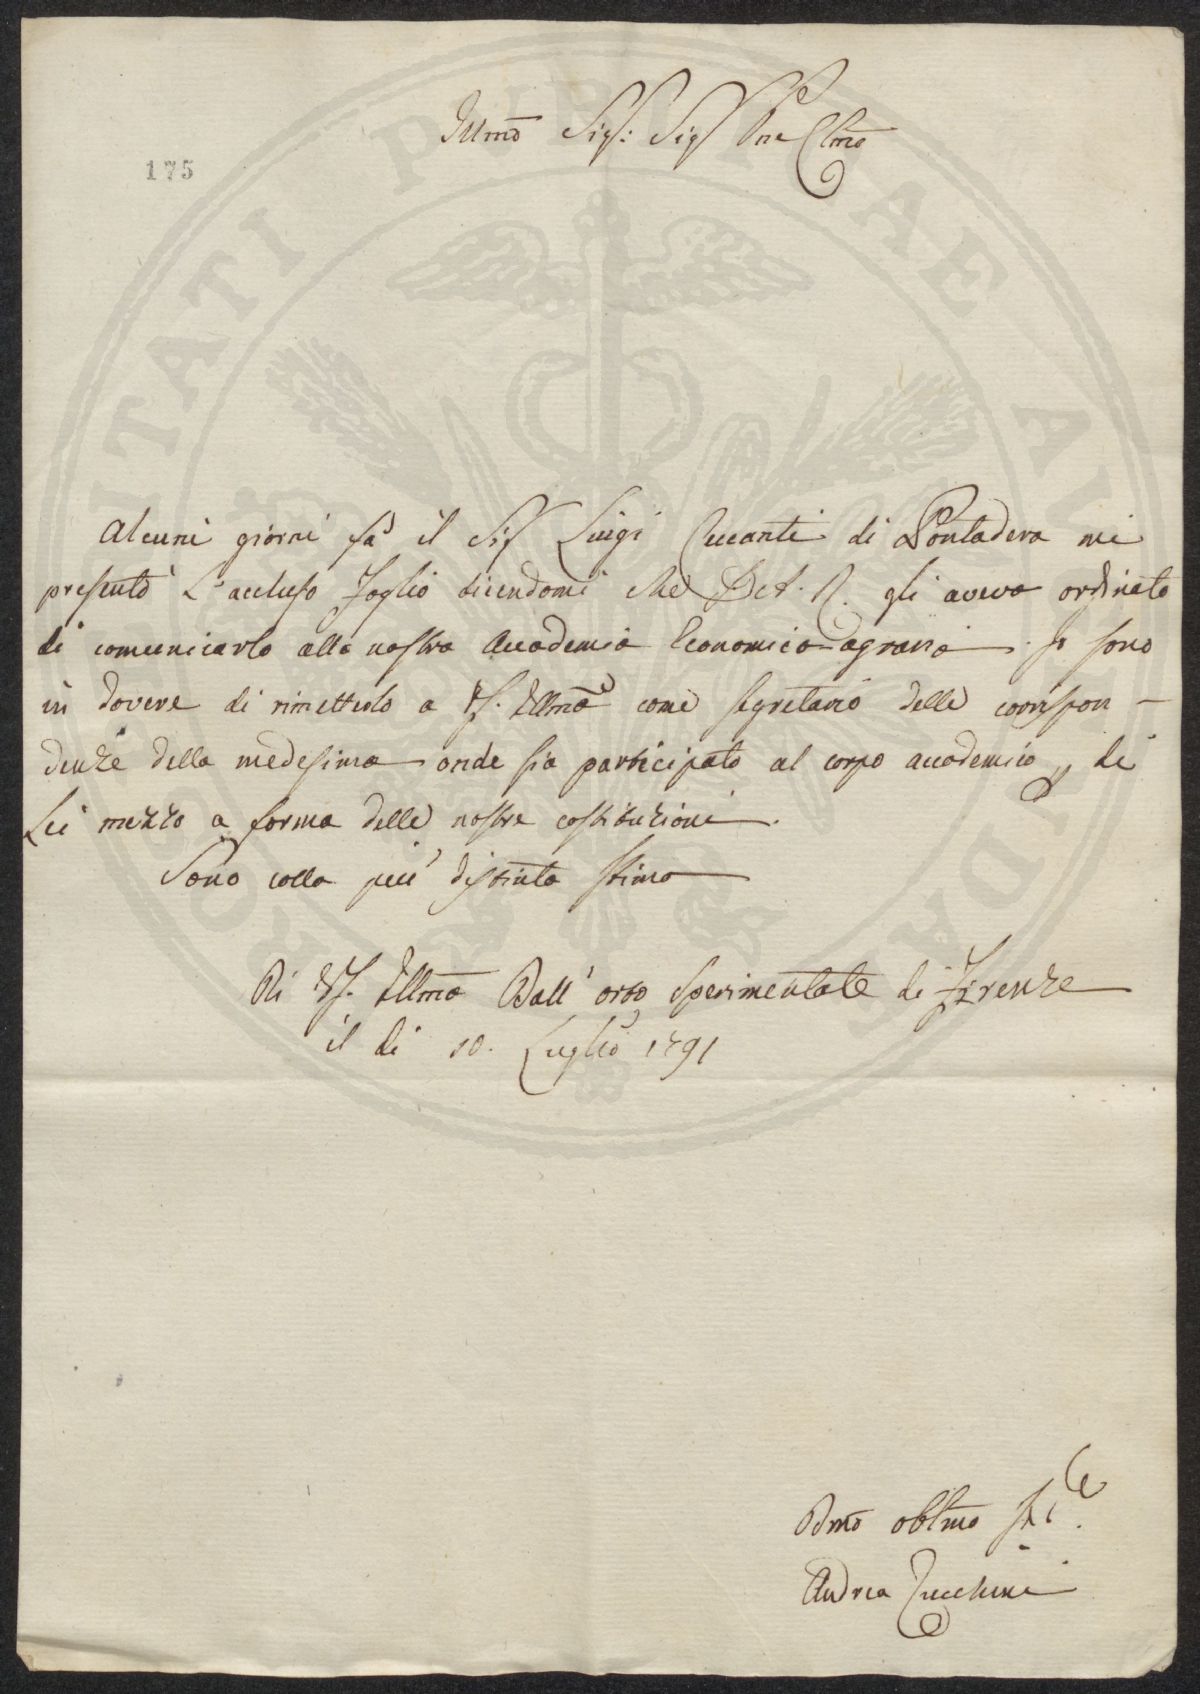 175
Illmo Sig: Sig Pne Clmo
Alcuni giorni fà il Sig Luigi Cuccanti di Pontadera mi
presentò l'accluso foglio dicendomi che gli aveva ordinato
di comunicarlo alla nostra Accademia Economico-agraria. Io sono
in dovere di rimetterlo a VS. Illma come segretario delle corrispon-
denze della medesima onde sia participato al corpo accademico p di
Lei mezzo a forma delle nostre costituzioni.
Sono colla più distinta stima
Di VS. Illma Dall'orto sperimentale di Firenze
il dì 10. Luglio 1791
Dmo oblmo
Andrea Zucchini